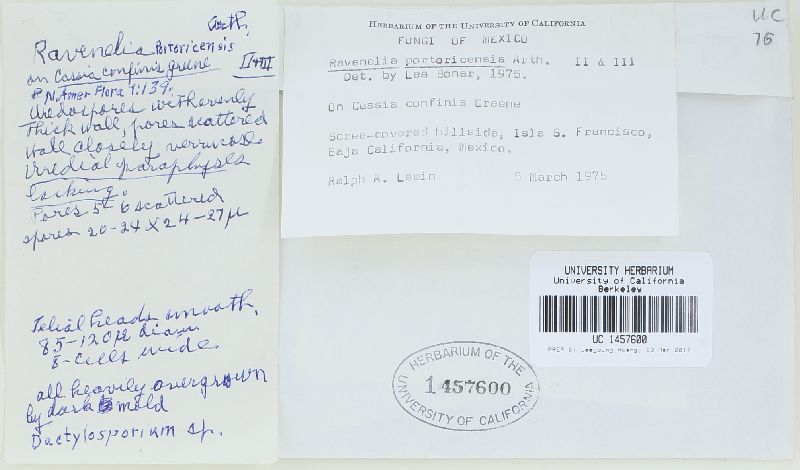 Arth.
Ravenelia Portoricensis
on Cassia confinis greene II+III
N. Amer Flora 7:139.
Uredospores with evenly
thick wall, pores scattered
wall closely verrucose
uredial paraphyses
lacking.
Pores 5-6 scattered
spores 20-24 X 24-27 μ
Telial heads smooth,
85-120μ diam
8-cells wide
all heavily overgrown
by dark mold
Dactylosporium sp.
HERBARIUM OF THE UNIVERSITY OF CALIFORNIA
FUNGI OF MEXICO
Ravenelia portoricensis Arth. II & III
Det. by Lee Bonar, 1975.
On Cassia confinis Greene
Scree-covered hillside, Isla S. Francisco,
Baja California, Mexico.
Ralph A. Lewin 5 March 1975
UC
76
UNIVERSITY HERBARIUM
University of California
Berkeley
UC 1457600
PREP BY Jaeyoung Hwang, 13 Mar 2017
HERBARIUM OF THE
1457600
UNIVERSITY OF CALIFORNIA